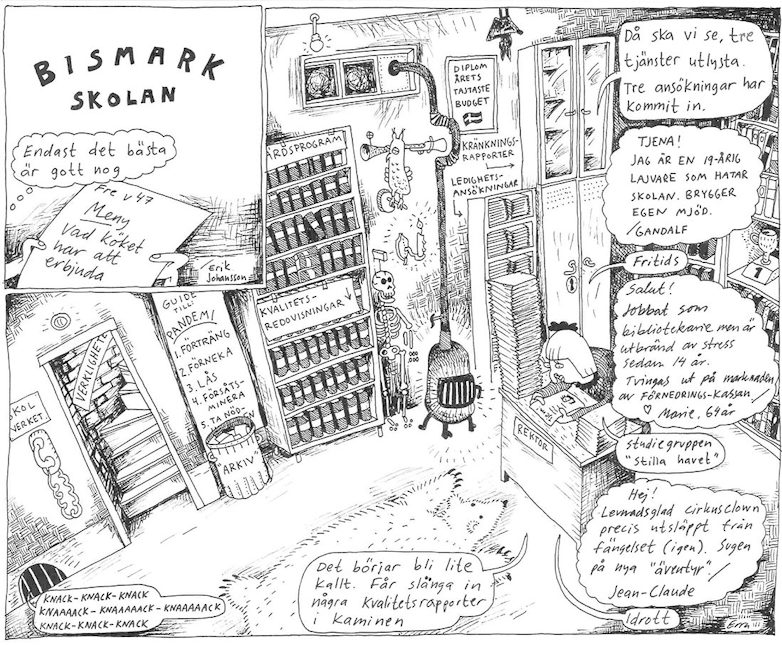 BISMARK
SKOLAN
Endast det bästa
är gott nog
Fre v 47
Meny
Vad köket
har att
erbjuda
/Erik
Johansson
DIPLOM
ÅRETS
TAJTASTE
BUDGET
KRÄNKNINGS-
RAPPORTER
LEDIGHETS-
ANSÖKNINGAR
ÅRDSPROGRAM
KVALITETS-
REDOVISNINGAR
GUIDE
TILL
PANDEMI
1. FÖRTRÄNG
2. FÖRNEKA
3. LÅS
4. FORSÄTS-
MINERA
5. TA NÖD-
"ARKIV"
VERKLIGHETEN
SKOL
VERKET
REKTOR
1
Då ska vi se, tre
tjänster utlysta.
Tre ansökningar har
kommit in.
TJENA!
JAG ÄR EN 19-ÅRIG
LAJVARE SOM HATAR
SKOLAN. BRYGGER
EGEN MJÖD.
/GANDALF
Fritids
Salut!
Jobbat som
bibliotekarie men är
utbränd av stress
sedan 14 år.
Tvingas ut på marknaden
av FÖRNEDRINGS-KASSAN/
♡ Marie, 64 år
studiegruppen
"stilla havet"
Hej!
Levnadsglad cirkusclown
precis utsläppt från
fängelset (igen). Sugen
på nya "äventyr"/
Jean-Claude
Idrott
Det börjar bli lite
kallt. Får slänga in
några kvalitetsrapporter
i kaminen
KNACK-KNACK-KNACK
KNAAAACK-KNAAAAACK-KNAAAAACK
KNACK-KNACK-KNACK